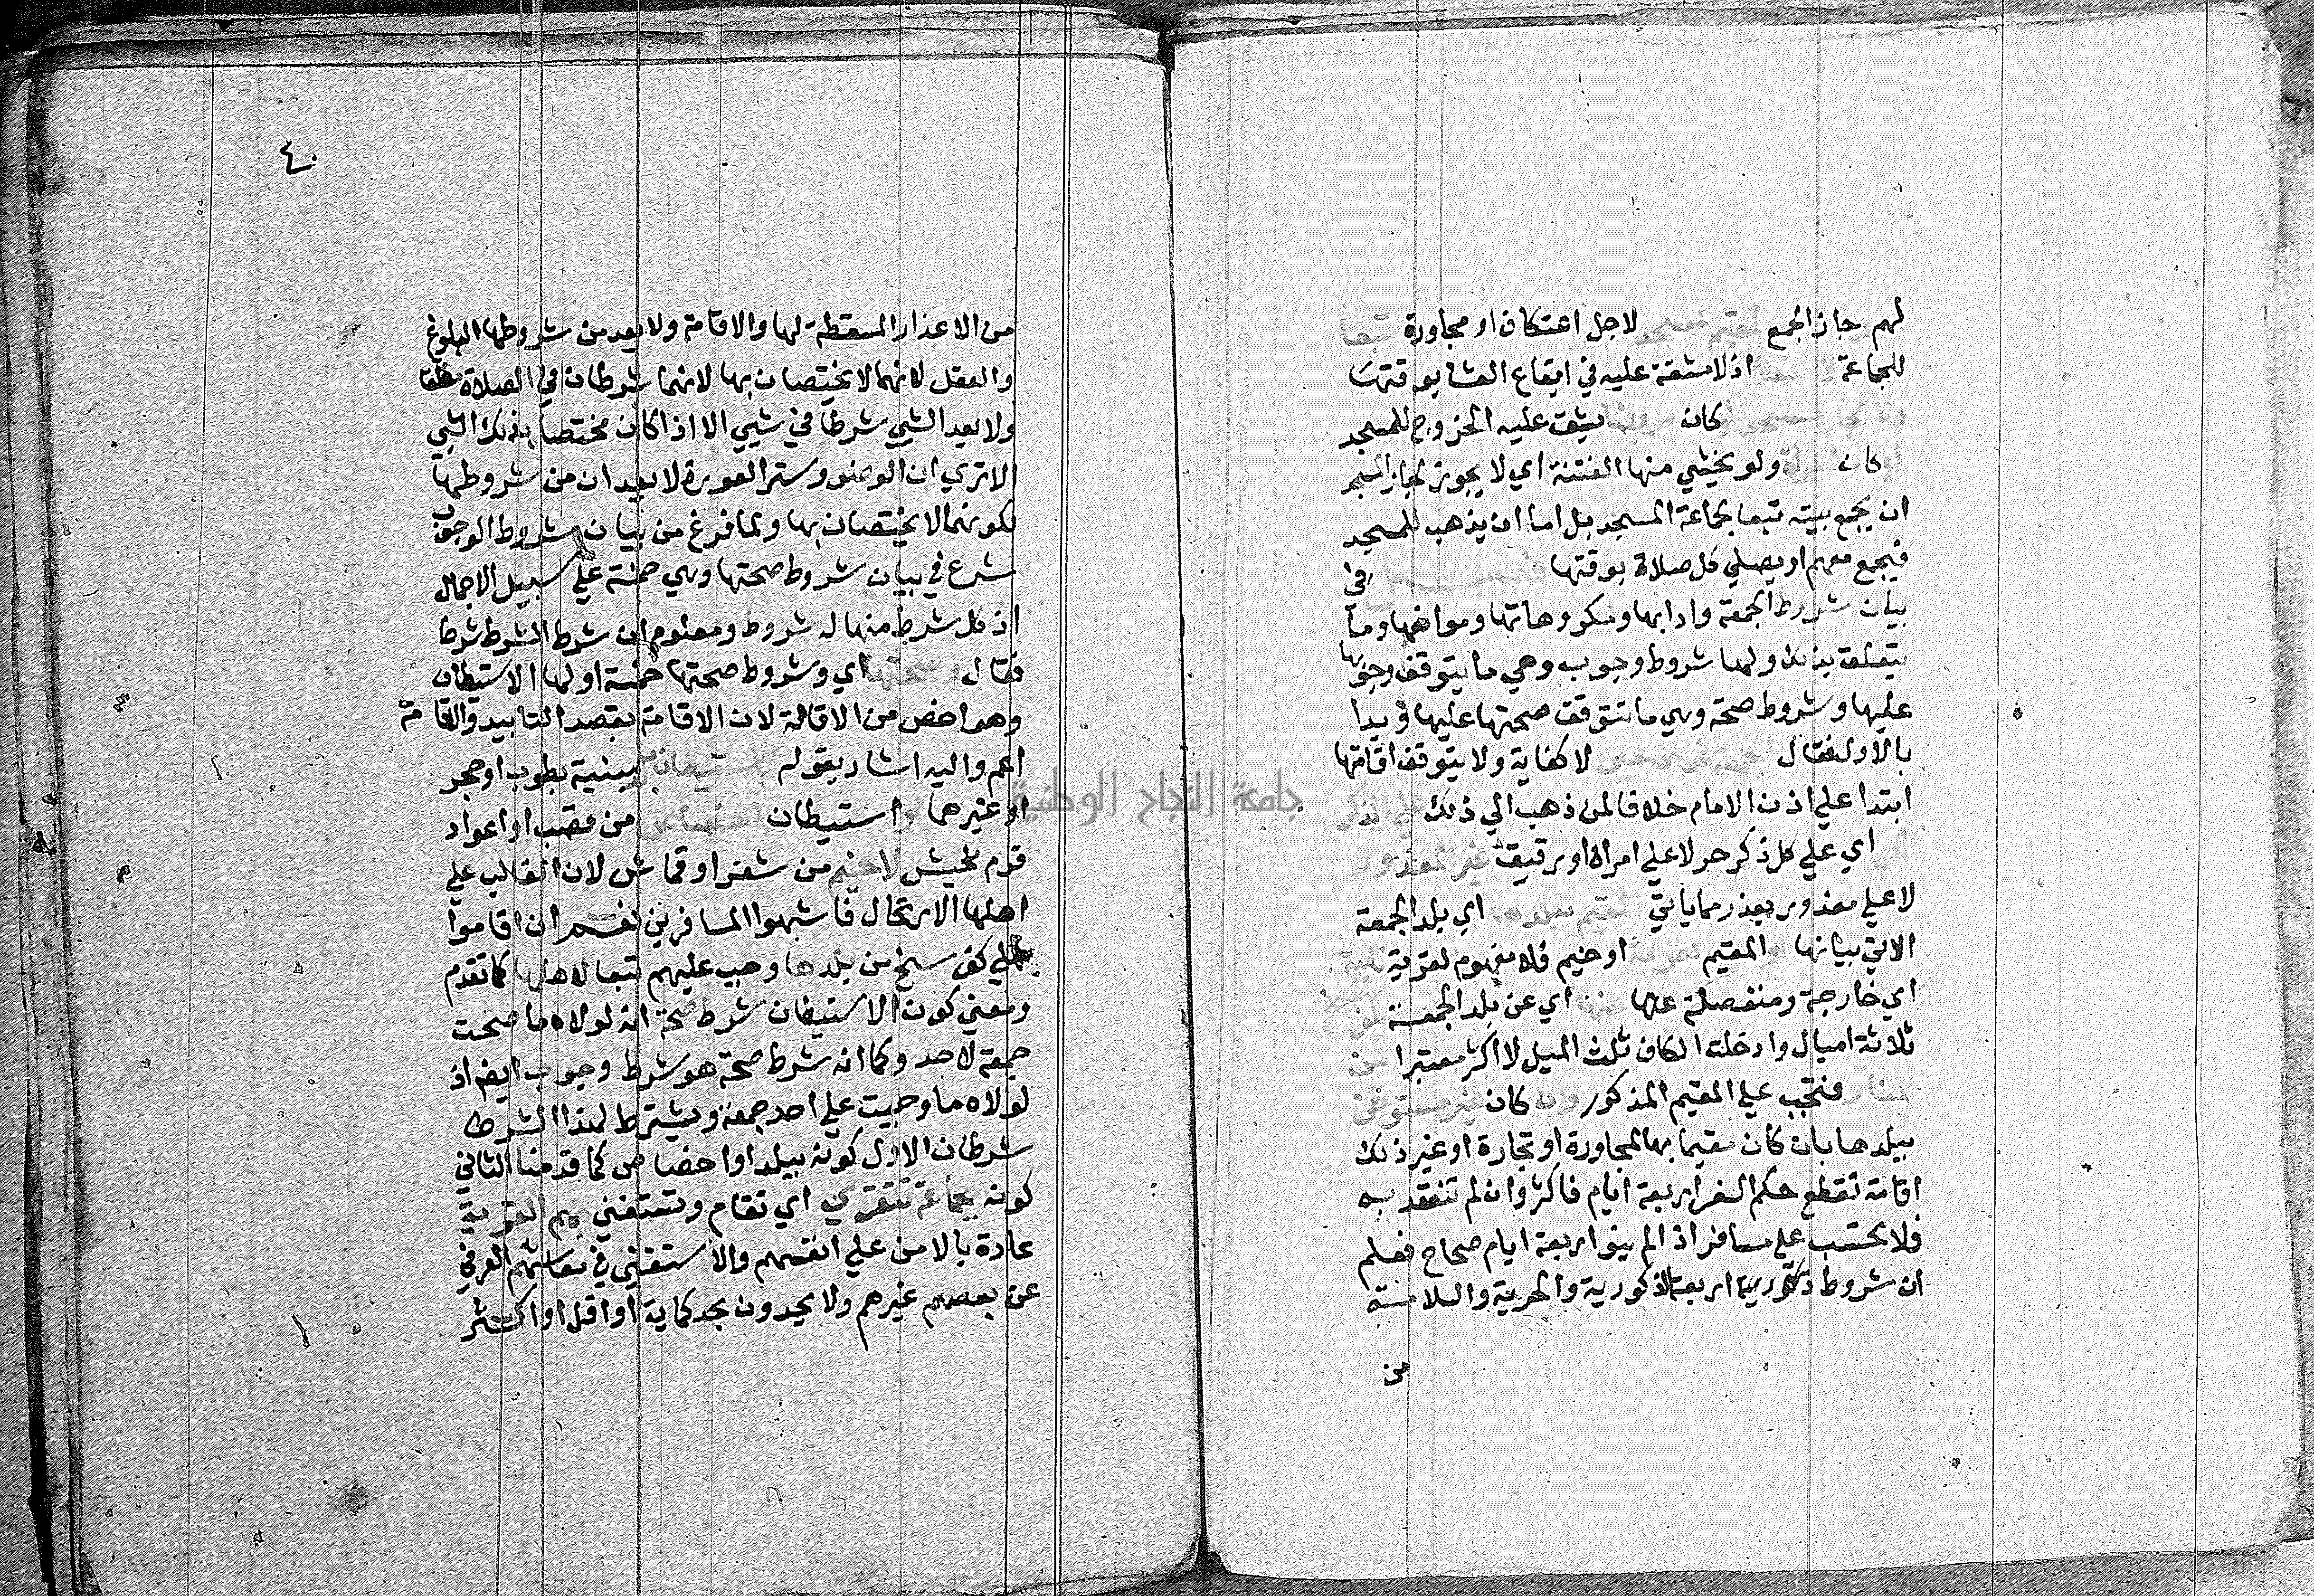 لهم وجاز الجمع لمقيم بمسجد لاجل اعتكاف او مجاورة تبعا
للجماعة لا استقلالا اذ لا مشقة عليه في ايقاع العشا بوقتها
ولا يجار مسجد ولو كان مريضا يشق عليه الخروج للمسجد
او كان امراة ولو يخشي منها الفتنة اي لا يجوز لجار المسجد
ان يجمع ببيته تبعا لجماعة المسجد بل اما ان يذهب للمسجد
فيجمع معهم او يصلي كل صلاة بوقتها فصل في
بيان شروط الجمعة وادابها ومكروهاتها وموانعها وما
يتعلق بذلك ولها شروط وجوب وهي ما يتوقف وجوبها
عليها وشروط صحة وهي ما تتوقف صحتها عليها وبدا
بالاول فقال الجمعة فرض عين لا كفاية ولا يتوقف اقامتها
ابتدا علي اذن الامام خلافا لمن ذهب الي ذلك علي الذكر
الحر اي علي كل ذكر حر لا علي امراة او رقيق غير المعذور
لا علي معذور بعذر مما ياتي المقيم ببلدها اي بلد الجمعة
الاتي بيانها او المقيم بقرية او خيم فلا مفهوم لقرية نايية
اي خارجة ومنفصلة عنها عنها اي عن بلد الجمعة بكفرسخ
ثلاثة اميال وادخلت الكاف ثلث الميل لا اكثر معتبرا من
المنار فتجب علي المقيم المذكور وان كان غير مستوطن
ببلدها بان كان مقيما بها لمجاورة او تجارة او غير ذلك
اقامة تقطع حكم السفر اربعة ايام فاكثر وان لم تنعقد به
فلا تجب علي مسافر اذا لم ينو اربعة ايام صحاح فعلم
ان شروط اربعة الذكورية والحرية والسلامة
من
٤٠
من الاعذار المسقطة لها والاقامة ولا يعد من شروطها البلوغ
والعقل لانهما لا يختصان بها لانهما شرطان في الصلاة مطلقا
ولا يعد الشيي شرطا في شيي الا اذا كان مختصا بذلك الشيي
الا تري ان الوضو وستر العورة لا يعدان من شروطها
لكونهما لا يختصان بها ولما فرغ من بيان شروط الوجوب
شرع في بيان شروط صحتها وهي خمسة علي سبيل الاجمال
اذ كل شرط منها له شروط ومعلوم ان شرط الشرط شرط
فقال وصحتها اي وشروط صحتها خمسة اولها الاستيطان
وهو اخص من الاقامة لان الاقامة بقصد التابيد والاقامة
اعم واليه اشار بقوله باستيطان بلد مبنية بطوب او حجر
او غيرهما واستيطان اخصاص من قصب او اعواد
لا خيم من شعر او قماش لان الغالب علي
اهلها الارتحال فاشبهوا المسافرين نعم ان اقاموا
علي كفرسخ من بلدها وجب عليهم تبعا لاهلها كما تقدم
ومعني كون الاستيطان شرط صحة انه لولاه ما صحت
جمعة لاحد وكما انه شرط صحة هو شرط وجوب ايضا اذ
لولاه ما وجبت علي احد جمعة ويشترط لهذا الشرط
شرطان الاول كونه ببلد او اخصاص كما قدمنا الثاني
كونه بجماعة تتقري اي تقام وتستغني بهم القرية
عادة بالامن علي انفسهم والاستغني في معاشهم العرفي
عن غيرهم ولا يحدون بحد كماية او اقل او اكثر
جامعة النجاح الوطنية